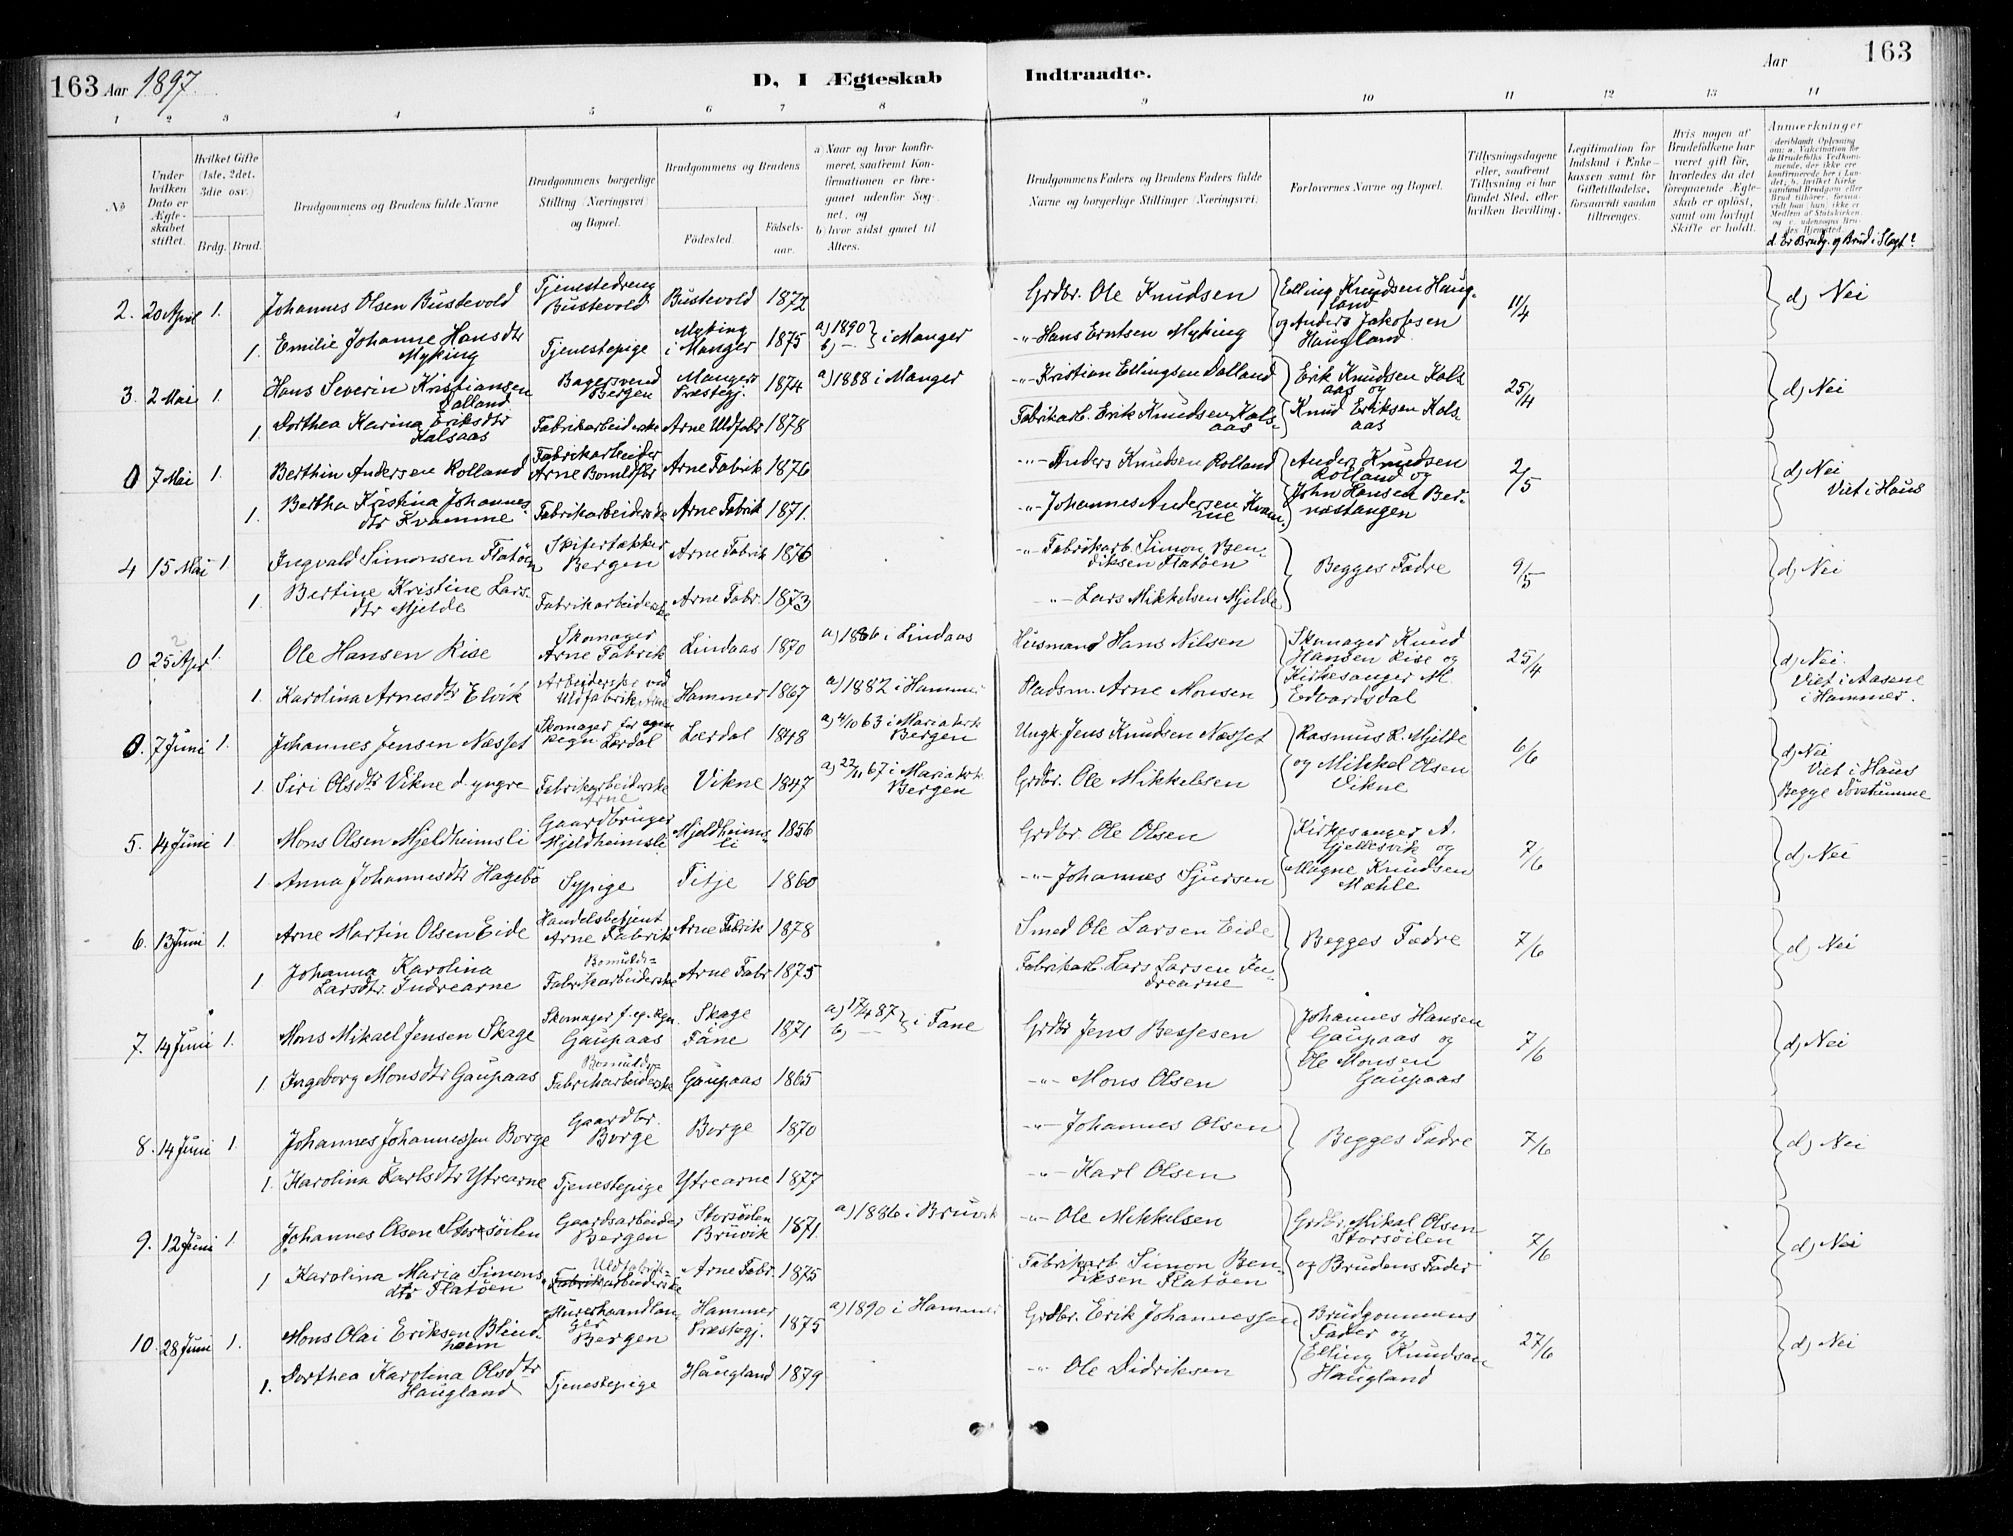 163 Aar 1897
D, I Ægteskab
Indtraadte.
Aar
163
1 2 3 4 5 6 7 8 9 10 11 12 13 14
No
Under hvilken Dato er Ægteskabet stiftet.
Hvilket Gifte (1ste, 2det, 3die osv.)
Brdg. Brud.
Brudgommens og Brudens fulde Navne
Brudgommens borgerlige Stilling (Næringsvei) og Bopæl.
Brudgommens og Brudens
Fødested.
Fødselsaar.
a Naar og hvor konfirmeret, saafremt Konfirmationen er foregaaet udenfor Sognet, og
b hvor sidst gaaet til Alters.
Brudgommens Faders og Brudens Faders fulde Navne og borgerlige Stillinger (Næringsvei)
Forlovernes Navne og Bopæl.
Tillysningsdagene eller, saafremt Tillysning ei har fundet Sted, efter hvilken Bevilling.
Legitimation for Indskud i Enkekassen samt for Giftetilladelse, forsaavidt saadan tiltrænges.
Hvis nogen af Brudefolkene har været gift før, hvorledes da det foregaaende Ægteskab er opløst, samt om lovligt Skifte er holdt.
Anmærkninger
d. Er Brudg. og Brud i Slegt?
2. 20 April 1. Johannes Olsen Bustevold Tjenestedreng Bustevold Bustevold 1872 Grdbr. Ole Knudsen Elling Knudsen Haugland 11/4 d) Nei
1. Emilie Johanne Hansdtr Myking Tjenestepige Myking i Manger 1875 a) 1890 b) — i Manger -"- Hans Erntsen Myking og Anders Jakobsen Haugland
3. 2 Mai 1. Hans Severin Kristiansen Dalland Bagersvend Bergen Mangers Præstegj. 1874 a) 1888 i Manger -"- Kristian Ellingsen Dalland Erik Knudsen Kalsaas og 25/4 d) Nei
1. Dorthea Karina Eriksdtr Kalsaas Fabrikarbeiderske Arne Uldfabr 1878 Fabrikarb. Erik Knudsen Kalsaas Knud Eriksen Kalsaas
0 7 Mai 1. Berthin Andersen Rolland Fabrikarbeider Arne Bomldfbr Arne Fabrik 1876 -"- Anders Knudsen Rolland Anders Knudsen Rolland og 2/5 d) Nei Viet i Haus
1. Bertha Kristina Johannesdtr Kvamme Fabrikarbeiderske Arne Fabrik 1871. -"- Johannes Andersen Kvamme John Hansen Bernæstangen
4 15 Mai 1. Ingvald Simonsen Flatøen Skifertækker Bergen Arne Fabrik 1876 -"- Fabrikarb. Simon Bendiksen Flatøen Begges Fædre 9/5 d) Nei
1. Bertine Kristine Larsdtr Mjelde Fabrikarbeiderske Arne Fabr. 1873 -"- Lars Mikkelsen Mjelde
0 25 Apr 1. Ole Hansen Rise Skomager Arne Fabrik Lindaas 1870 a) 1886 i Lindaas Husmand Hans Nilsen Skomager Knud Hansen Rise og 25/4 d) Nei. Viet i Aasene i Hammer.
1. Karolina Arnesdtr Elvik Arbeiderske ved Uldfabrik Arne Hammer 1867 a) 1882 i Hammer Pladsm. Arne Monsen Kirkesanger M. Edvardsdal
0. 7 Juni 1. Johannes Jensen Næsset Skomager for egen Regn Lærdal Lærdal 1848 a) 4/10 63 i Mariakirk Bergen Ungk. Jens Knudsen Næsset Rasmus R. Mjelde 6/6 d) Nei Viet i Haus Begge Døvstumme
1. Siri Olsdtr Vikne d. yngre Fabrikarbeiderske Arne Vikne 1847 a) 22/11 67 i Mariakrk. Bergen Grdbr. Ole Mikkelsen og Mikkel Olsen Vikne
5. 14 Juni 1. Mons Olsen Mjeldheimsli Gaardbruger Mjeldheimsli Mjeldheimsli 1856 Grdbr. Ole Olsen Kirkesanger A. Gjellesvik og 7/6 d) Nei
1. Anna Johannesdtr Hagebø Sypige Titje 1860 -"- Johannes Sjursen Magne Knudsen Mæhle
6. 13 Juni 1. Arne Martin Olsen Eide Handelsbetjent Arne Fabrik Arne Fabrik 1878 Smed Ole Larsen Eide Begges Fædre 7/6 d) Nei
1 Johanna Karolina Larsdtr. Indrearne Bomulds-Fabrikarbeiderske Arne Fabr 1875 Fabrikarb. Lars Larsen Indrearne
7. 14 Juni 1. Mons Mikael Jensen Skage Skomager f. eg. Rgn. Gaupaas Skage Fane 1871 a) 17/4 87 b) — i Fane Grdbr Jens Bessesen Johannes Hansen Gaupaas og 7/6 d) Nei
1 Ingeborg Monsdtr Gaupaas Bomulds-Fabrikarbeiderske Gaupaas 1865 -"- Mons Olsen Ole Monsen Gaupaas
8. 14 Juni 1. Johannes Johannessen Borge Gaardbr. Borge Borge 1870 -"- Johannes Olsen Begges Fædre 7/6 d) Nei
1. Karolina Karlsdtr Ytrearne Tjenestepige Ytrearne 1877 -"- Karl Olsen
9. 12 Juni 1. Johannes Olsen Storsøilen Gaardsarbeider Bergen Storsøilen Bruvik 1871. a) 1886 i Bruvik -"- Ole Mikkelsen Grdbr. Mikal Olsen Storsøilen 7/6 d) Nei
1 Karolina Maria Simonsdtr Flatøen Uldfabrik-Fabrikarbeiderske Arne Fabr. 1875 Fabrikarb Simon Bendiksen Flatøen og Brudens Fader
10. 28 Juni 1. Mons Olai Eriksen Blindheim Murerhaandlanger Bergen Hammer Præstegj. 1875 a) 1890 i Hammer Grdbr. Erik Johannessen Brudgommens Fader og 27/6 d) Nei
1. Dorthea Karolina Olsdtr Haugland Tjenestepige Haugland 1879 -"- Ole Didriksen Elling Knudsen Haugland